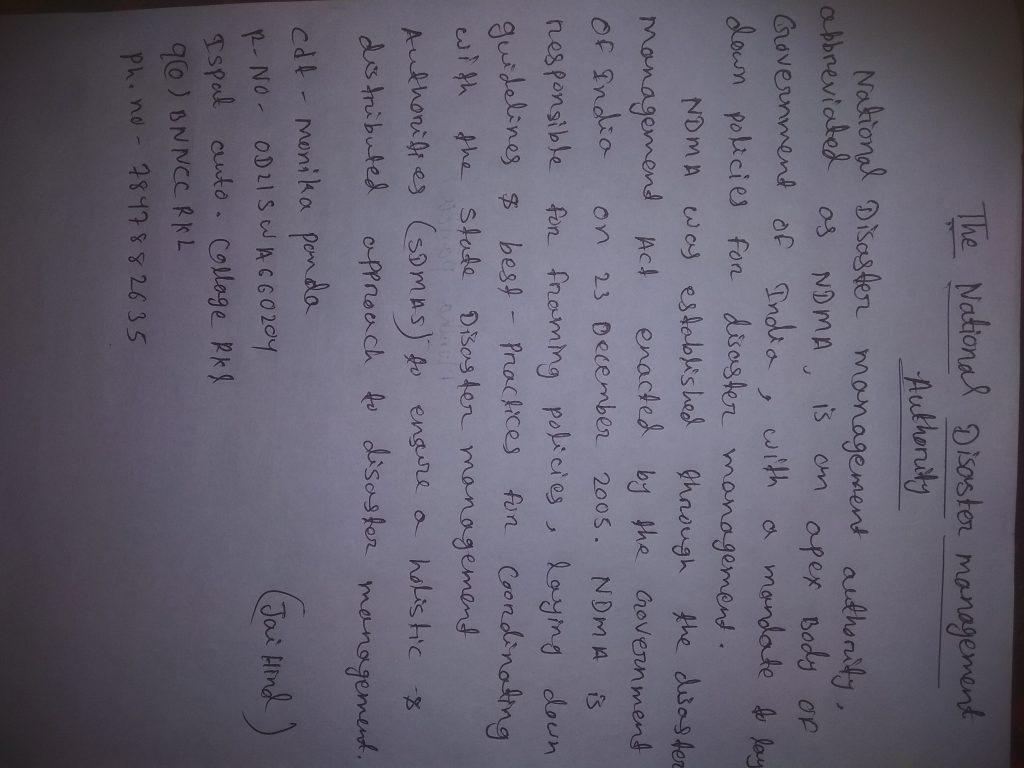 The National Disaster management
Authority
National Disaster management authority,
abbreviated as NDMA, is an apex Body of
Government of India, with a mandate to lay
down policies for disaster management.
NDMA was established through the disaster
management Act enacted by the Government
of India on 23 December 2005. NDMA is
responsible for framing policies, laying down
guidelines & best-practices for coordinating
with the state Disaster management
Authorities (SDMAS) to ensure a holistic &
distributed approach to disaster management.
(Jai Hind)
cdt - monika panda
R-NO- OD21SWA660204
Ispat auto. College RKL
9(O) BNNCC RKL
Ph.no- 7847882635